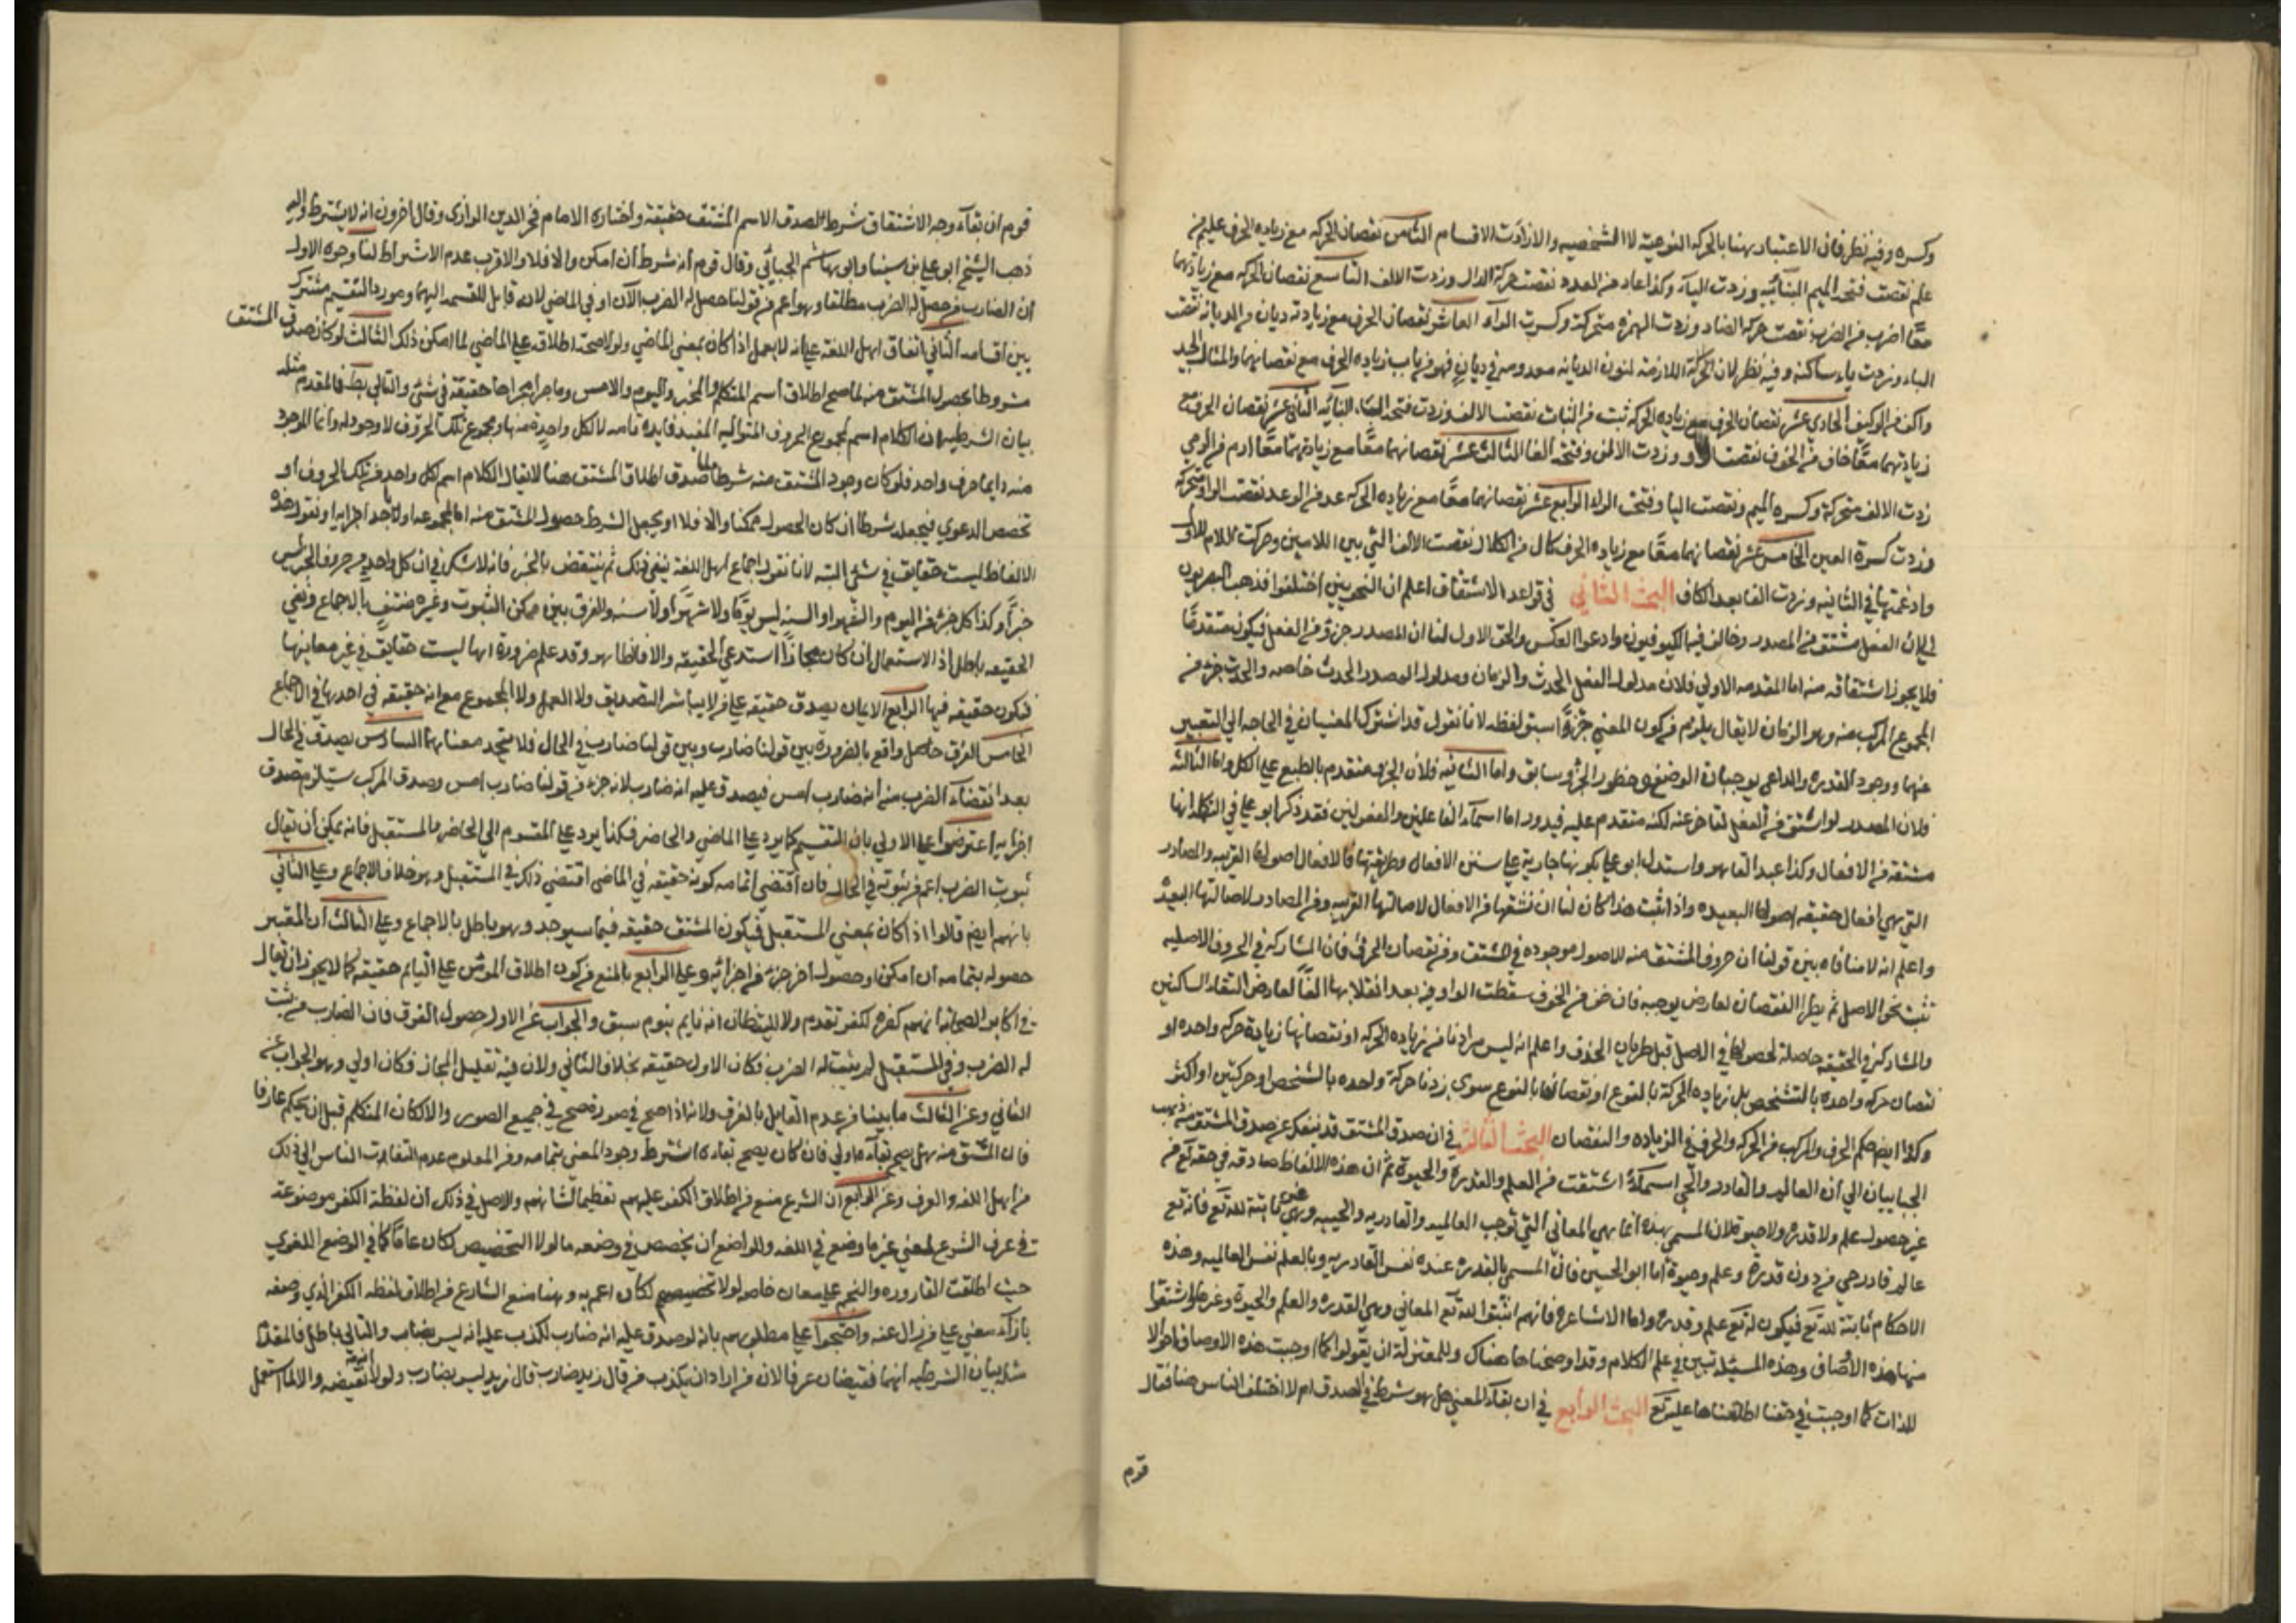 وكسره وفيه نظر فان الاعتبار بهنا بالحركة النوعية لا الشخصيه والا زادت الاقسام الثامن نقصان الحركه مع زياده الحرف عليم من
علم نقصت فتحة الميم البنائيه وزدت الياء وكذا عاد من العدد نقصت حركة الدال وزدت الالف التاسع نقصان الحركه مع زيادتهما
معًا اضرب من الضرب نقصت حركه الضاد وزدت الهمزه متحركة وكسرت الراء العاشر نقصان الحرف مع زيادته ديان من الديانه نقصت
الياء وزدت ياء ساكنه وفيه نظر لان الحركة اللازمة لنون الديانه معدومه في ديان فهو من باب زياده الحرف مع نقصانهما والمثال الجيد
الحادى عشر نقصان الحرف مع زياده الحركه ثبت من الثبات نقصت الالف وزدت فتحة التاء البنائيه الثانى عشر نقصان الحرف مع
زيادتهما معًا خاف من الخوف نقصت الواو وزدت الالف وفتحة الفا الثالث عشر نقصانهما معًا مع زيادتهما معًا ارم من الرمي
زدت الالف متحركة وكسره الميم ونقصت اليا وفتحت الراء الرابع عشر نقصانهما معًا مع زياده الحركه عد من الوعد نقصت الواو متحركة
وزدت كسرة العين الخامس عشر نقصانهما معًا مع زياده الحرف كال من الكلال نقصت الالف التي بين اللامين وحركت اللام الاولى
وادغمتها في الثانيه وزدت الفا بعد الكاف البحث الثاني في قواعد الاشتقاق اعلم ان النحويين اختلفوا فذهب البصريون
الى ان الفعل مشتق من المصدر وخالف فيه الكوفيون وادعوا العكس والحق الاول لنا ان المصدر جزؤ من الفعل فيكون متقدمًا
فلا يجوز اشتقاقه منه اما المقدمه الاولي فلان مدلول الفعل الحدث والزمان ومدلول المصدر الحدث خاصه والحدث جزء من
المجموع المركب منه وهو الزمان لا يقال يلزم من كون المعني جزؤًا سبق لفظه لانا نقول قد اشترك المعنيان في الحاجه الي التعبير
عنهما ووجود القدره والداعي يوجبان الوضع وحظور الجزؤ سابق واما الثانيه فلان الجزء متقدم بالطبع علي الكل واما الثالثه
فلان المصدر لو اشتق من الفعل لتاخر عنه لكنه متقدم عليه فيدور اما اسماء الفاعلين والمفعولين فقد ذكر ابو علي في التكملة انها
مشتقه من الافعال وكذا عبد القاهر واستدل ابو علي بكونها جارية على سنن الافعال وطريقتها فالافعال اصولها القريبه والمصادر
التي هي افعال حقيقه اصولها البعيده واذا ثبت هذا كان لنا ان نشتقها من الافعال لاصالتها القريبه ومن المصادر لاصالتها البعيدة
واعلم انه لا منافاه بين قولنا ان حروف المشتق منه الاصول موجوده في المشتق ومن نقصان الحرف فان المشاركة في الحروف الاصليه
تثبت نحو الاصل ثم يطرأ النقصان لعارض يوجبه فان خف من الخوف سقطت الواو فيه بعد انقلابها الفًا لعارض التقاء الساكنين
والمشاركة في الحقيقه حاصلة لحصولها في الاصل قبل طريان الحذف واعلم انه ليس مرادنا من زياده الحركه او نقصانها زيادة حركه واحده او
نقصان حركه واحده بالتشخص بل زياده الحركة بالنوع او نقصانها بالنوع سوى زدنا حركة واحده بالشخص او حركتين او اكثر
وكذا ايضا حكم الحرف والمركب من الحركه والحرف في الزياده والنقصان البحث الثالث في ان صدق المشتق قد ينفك عن صدق المشتق منه ذهب
الجبائيان الي ان العالم والقادر والحي اسماء اشتقت من العلم والقدرة والحيوة ثم ان هذه الالفاظ صادقه في حقه تع من
غير حصول علم ولا قدره ولا حيوة لان المسمى بهذه انما هي المعاني التي توجب العالميه والقادريه والحييه وهي غير ثابتة لله تع فانه تع
عالم قادر حي من دون قدرة وعلم وحيوة اما ابو الحسين فان المسمى بالقدره عنده نفس القادريه وبالعلم نفس العالميه وهذه
الاحكام ثابتة لله تع فيكون له تع علم وقدره واما الاشاعره فانهم اثبتوا لله تع المعاني وهي القدره والعلم والحيوة وغيرها واشتقوا
منها هذه الاوصاف وهذه المسئله تبين في علم الكلام وقد اوضحناها هناك وللمعتزلة ان يقولوا كما اوجبت هذه الاوصاف احوالا
للذات كما اوجبت في حقنا اطلقناها عليه تع البحث الرابع في ان بقاء المعني هل هو شرط في الصدق ام لا اختلف الناس هنا فقال
قوم
قوم ان بقاء وجه الاشتقاق شرط لصدق الاسم المشتق حقيقة واختاره الامام فخر الدين الرازى وقال اخرون انه لا يشترط واليه
ذهب الشيخ ابو علي بن سينا وابو هاشم الجبائي وقال قوم انه شرط ان امكن والا فلا والاقرب عدم الاشتراط لنا وجوه الاول
ان الضارب من حصل له الضرب مطلقا وهو اعم من قولنا حصل له الضرب الآن او في الماضي لانه قابل للقسمة اليهما ومورد التقسيم مشترك
بين اقسامه الثاني اتفاق اهل اللغه علي انه لا يعمل اذا كان بمعني الماضي ولولا صحة اطلاقه على الماضي لما امكن ذلك الثالث لو كان صدق المشتق
مشروطا بحصول المشتق منه لما صح اطلاق اسم المتكلم والمخبر واليوم والامس وما جري مجراها حقيقة في شئ والتالي بط فالمقدم مثله
بيان الشرطيه ان الكلام اسم لمجموع الحروف المتواليه المفيد فايده تامه لا لكل واحدة منها ومجموع تلك الحروف لا وجود له وانما الموجود
منه دايما حرف واحد فلو كان وجود المشتق منه شرطا لما صدق اطلاق المشتق هنا لا يقال الكلام اسم لكل واحد من تلك الحروف او
تخصص الدعوي فيجعله شرطا ان كان الحصول ممكنا والا فلا او يجعل الشرط حصول المشتق منه اما لمجموعه او لآحد اجزايه او نقول هذه
الالفاظ ليست حقايق في شئ البته لانا نقول اجماع اهل اللغة ينفي ذلك ثم ينتقض بالخبر فانه لا شك في ان كل واحد من حروف الخبر ليس
خبرًا وكذا كل جزء من اليوم والشهر او السنه ليس يومًا ولا شهرًا ولا سنه والفرق بين ممكن الثبوت وغيره منتفٍ بالاجماع ونفي
الحقيقه باطل اذ الاستعمال ان كان مجازًا استدعى الحقيقه والا فالظاهر وقد علم ضرورة انها ليست حقايق في غير معانيها
فيكون حقيقه فيها الرابع الايمان يصدق حقيقه علي من لا يباشر التصديق ولا العمل ولا المجموع مع انه حقيقه في احدها في الاجماع
الخامس الفرق حاصل واقع بالضرورة بين قولنا ضارب وبين قولنا ضارب في الحال فلا يتحد معناهما السادس يصدق في الحال
بعد انقضاء الضرب منه انه ضارب امس فيصدق عليه انه ضارب لانه جزء من قولنا ضارب امس وصدق المركب يستلزم صدق
اجزايه اعترضوا علي الاولي بان التقسيم كما يرد علي الماضي والحاضر فكذا يرد علي المقسوم الي الحاضر والمستقبل فانه يمكن أن يقال
ثبوت الضرب اعم من ثبوته في الحال فان اقتضى انقسامه كونه حقيقه في الماضى اقتضي ذلك في المستقبل وهو خلاف الاجماع وعلي الثاني
بانهم ايضا قالوا اذا كان بمعني المستقبل فيكون المشتق حقيقه فيما سيوجد وهو باطل بالاجماع وعلي الثالث أن المعتبر
حصوله بتمامه ان امكن او حصول اخر جزء من اجزائه وعلى الرابع بالمنع من كون اطلاق المومن علي النايم حقيقه كما لا يجوز ان يقال
في اكابر الصحابه انهم كفره لكفر تقدم ولا لليقظان انه نايم بنوم سبق والجواب عن الاول حصول الفرق فان الضارب من ثبت
له الضرب وفي المستقبل لم يثبت له الضرب فكان الاول حقيقه بخلاف الثاني ولان فيه تقليل المجاز فكان اولي وهو الجواب عن
الثاني وعن الثالث ما بينا من عدم القايل بالفرق ولانه اذا صح في صورة صح في جميع الصور والا لكان المتكلم قبل ان يحكم عارفا
فان المشتق منه هل يصح بقاءه اولي فان كان يصح بقاءه اشترط وجود المعني بتمامه ومن المعلوم عدم التفات الناس الى ذلك
من اهل اللغه والعرف وعن الرابع ان الشرع منع من اطلاق الكفر عليهم تعظيما لشانهم والاصل في ذلك أن لفظة الكفر موضوعة
في عرف الشرع لمعني غير ما وضع في اللغه وللواضع أن يخصص في وضعه ما لولا التخصيص لكان عامًا كما في الوضع اللغوي
حيث اطلقت القاروره والنجم علي معان خاصه لولا تخصيصهم لكان اعم به وبهنا منع الشارع من اطلاق لفظه الكفر الذي وضعه
بازاء معني علي من زال عنه واحتجوا علي مطلوبهم بانه لو صدق عليه انه ضارب لكذب عليه انه ليس بضارب والتالي باطل فالمقدم
مثله بيان الشرطيه انهما نقيضان عرفا لان من اراد ان يكذب من قال زيد ضارب قال زيد ليس بضارب ولولا انه نقيضه والا لما استعمل